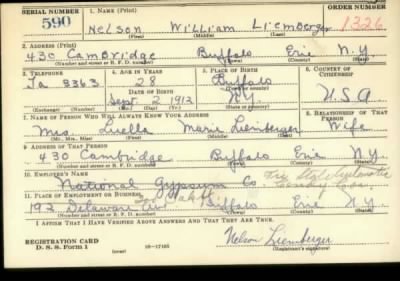 SERIAL NUMBER 1. NAME (Print) ORDER NUMBER
590 Nelson William Liemberger 1326
(First) (Middle) (Last)
2. ADDRESS (Print)
430 Cambridge Buffalo Erie N.Y
(Number and street or R. F. D. number) (Town) (County) (State)
3. TELEPHONE 4. AGE IN YEARS 5. PLACE OF BIRTH 6. COUNTRY OF CITIZENSHIP
Ta 8363 28 Buffalo
DATE OF BIRTH (Town or county)
Sept. 2 1912 N.Y. U.S.A
(Exchange) (Number) (Mo.) (Day) (Yr.) (State or country)
7. NAME OF PERSON WHO WILL ALWAYS KNOW YOUR ADDRESS 8. RELATIONSHIP OF THAT PERSON
Mrs. Luella Marie Liemberger Wife
(Mr., Mrs., Miss) (First) (Middle) (Last)
9. ADDRESS OF THAT PERSON
430 Cambridge Buffalo Erie N.Y.
(Number and street or R. F. D. number) (Town) (County) (State)
10. EMPLOYER'S NAME
National Gypsum Co
11. PLACE OF EMPLOYMENT OR BUSINESS
192 Delaware Av. Buffalo Erie N.Y.
(Number and street or R. F. D. number) (Town) (County) (State)
I AFFIRM THAT I HAVE VERIFIED ABOVE ANSWERS AND THAT THEY ARE TRUE.
REGISTRATION CARD
D. S. S. Form 1 (over) 16-17105 Nelson Liemberger
(Registrant's signature)